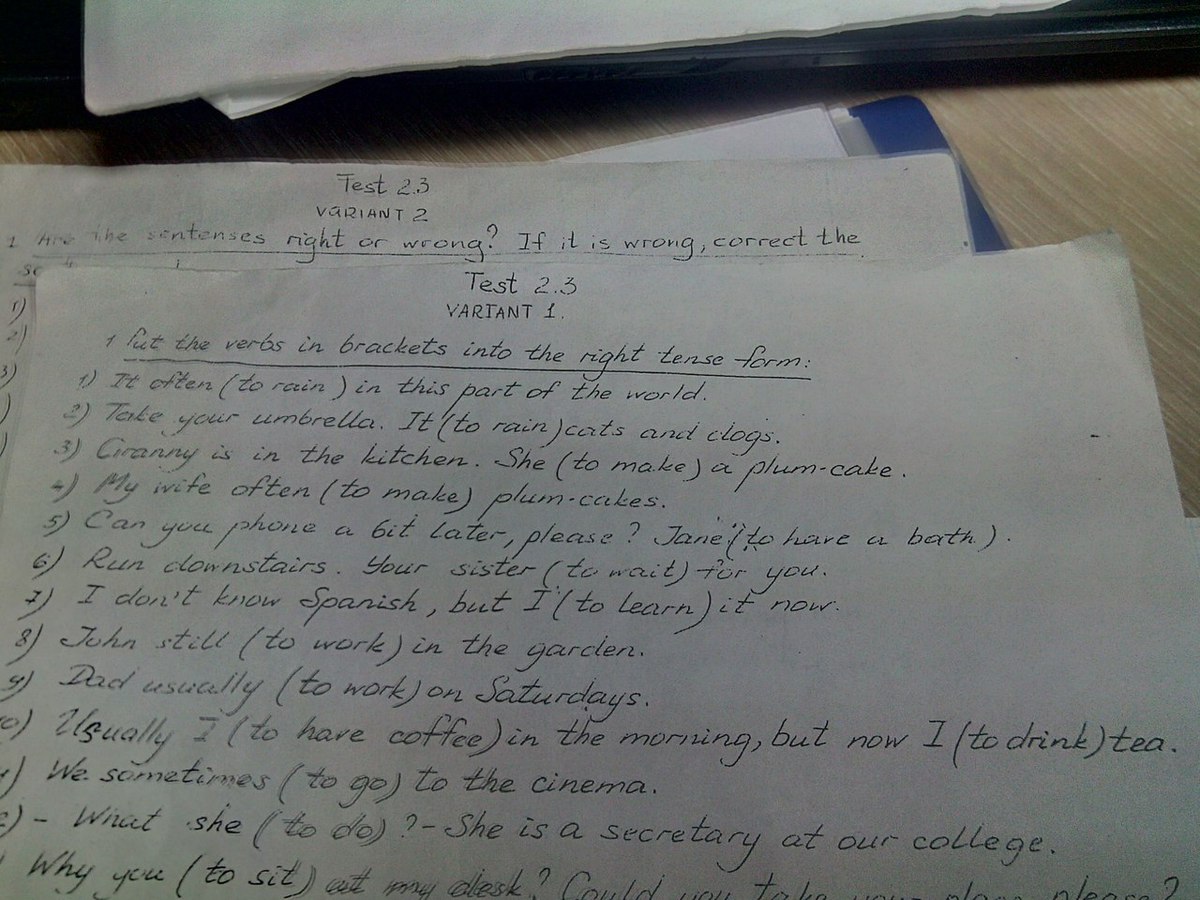 Test 2.3
VARIANT 2
1 Are the sentenses right or wrong? If it is wrong, correct the
1)
2)
3)
)
)
Test 2.3
VARIANT 1.
1 Put the verbs in brackets into the right tense form:
1) It often (to rain) in this part of the world.
2) Take your umbrella. It (to rain) cats and dogs.
3) Granny is in the kitchen. She (to make) a plum-cake.
4) My wife often (to make) plum-cakes.
5) Can you phone a bit later, please? Jane (to have a bath).
6) Run downstairs. Your sister (to wait) for you.
7) I don't know Spanish, but I (to learn) it now.
8) John still (to work) in the garden.
9) Dad usually (to work) on Saturdays.
0) Usually I (to have coffee) in the morning, but now I (to drink) tea.
) We sometimes (to go) to the cinema.
2) - What she (to do)? - She is a secretary at our college.
Why you (to sit) at my desk? Could you take your place please?